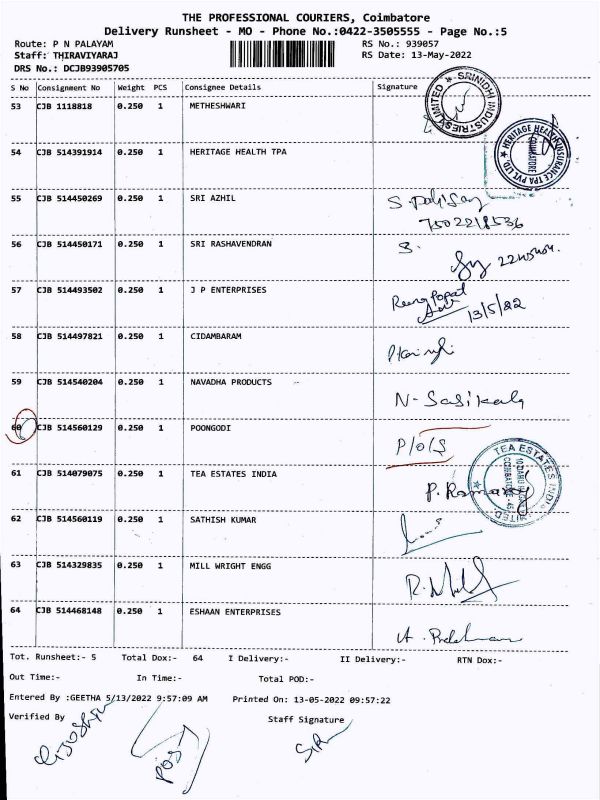 THE PROFESSIONAL COURIERS, Coimbatore
Delivery Runsheet - MO - Phone No.:0422-3505555 - Page No.:5
Route: P N PALAYAM RS No.: 939057
Staff: THIRAVIYARAJ RS Date: 13-May-2022
DRS No.: DCJB93905705
S No Consignment No Weight PCS Consignee Details Signature
53 CJB 1118818 0.250 1 METHESHWARI SRINIDHI INDUSTRIES LIMITED
54 CJB 514391914 0.250 1 HERITAGE HEALTH TPA HERITAGE HEALTH INSURANCE TPA PVT. LTD. COIMBATORE
55 CJB 514450269 0.250 1 SRI AZHIL
7502218536
56 CJB 514450171 0.250 1 SRI RASHAVENDRAN S.
57 CJB 514493502 0.250 1 J P ENTERPRISES
13/5/22
58 CJB 514497821 0.250 1 CIDAMBARAM
59 CJB 514540204 0.250 1 NAVADHA PRODUCTS N-Sasikala
60 CJB 514560129 0.250 1 POONGODI P/O/S
61 CJB 514079075 0.250 1 TEA ESTATES INDIA TEA ESTATES INDIA LIMITED COIMBATORE P.
62 CJB 514560119 0.250 1 SATHISH KUMAR
63 CJB 514329835 0.250 1 MILL WRIGHT ENGG
64 CJB 514468148 0.250 1 ESHAAN ENTERPRISES
Tot. Runsheet:- 5 Total Dox:- 64 I Delivery:- II Delivery:- RTN Dox:-
Out Time:- In Time:- Total POD:-
Entered By :GEETHA 5/13/2022 9:57:09 AM Printed On: 13-05-2022 09:57:22
Verified By Staff Signature